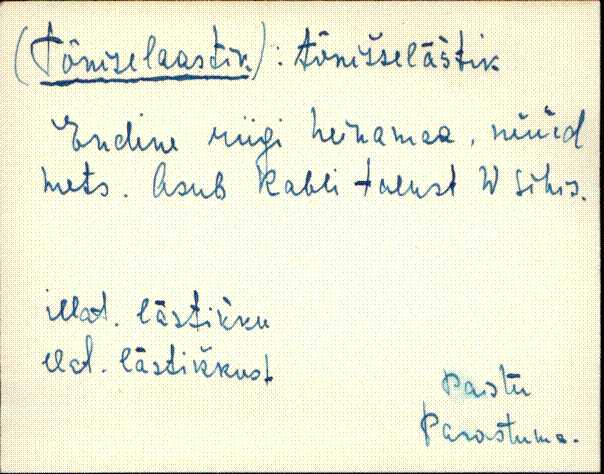 (Tõnizelaastik) : tõnišseläštik
Endine riigi heinamaa, nüüd
mets. Asub Kabli talust W sihis.
illat. lästikku
elat. lästikkust
Paistu
Parastuma.